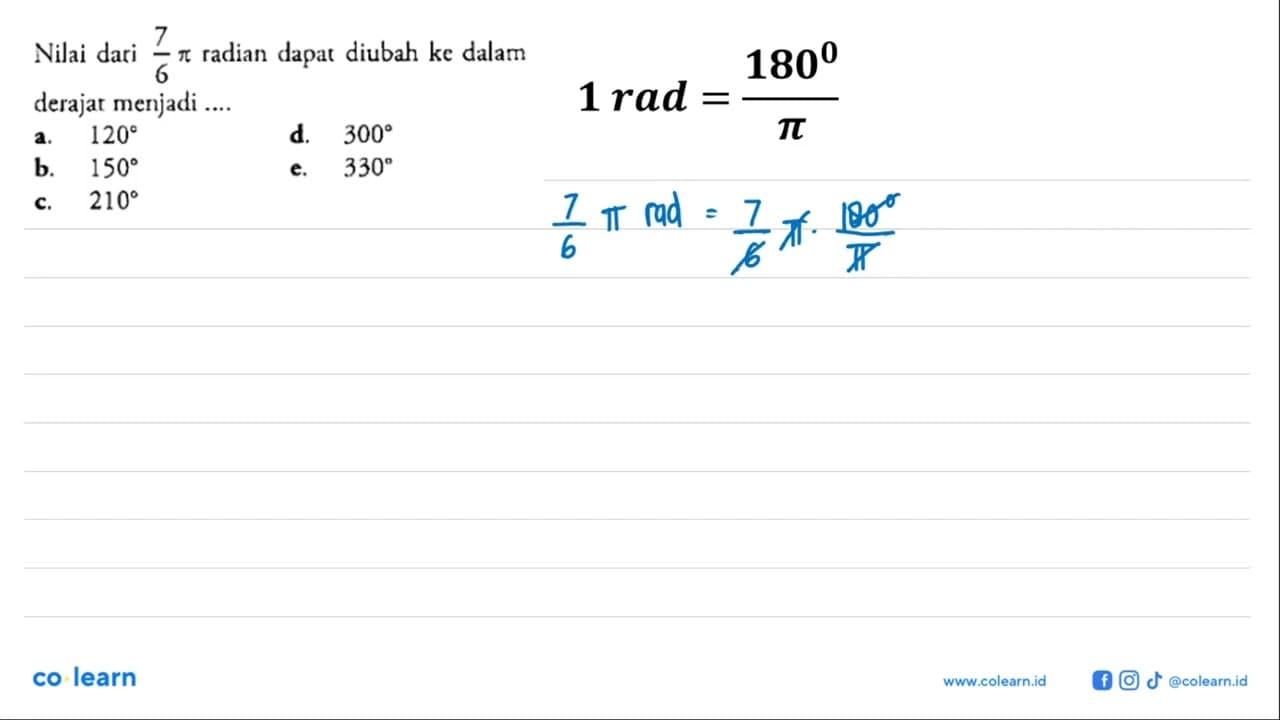 Nilai dari 7/6 π radian dapat diubah ke dalam
derajat menjadi ....
a. 120° d. 300°
b. 150° e. 330°
c. 210°
1 rad = 180⁰/π
7/6 π rad = 7/6 π · 180°/π
co learn
www.colearn.id @colearn.id